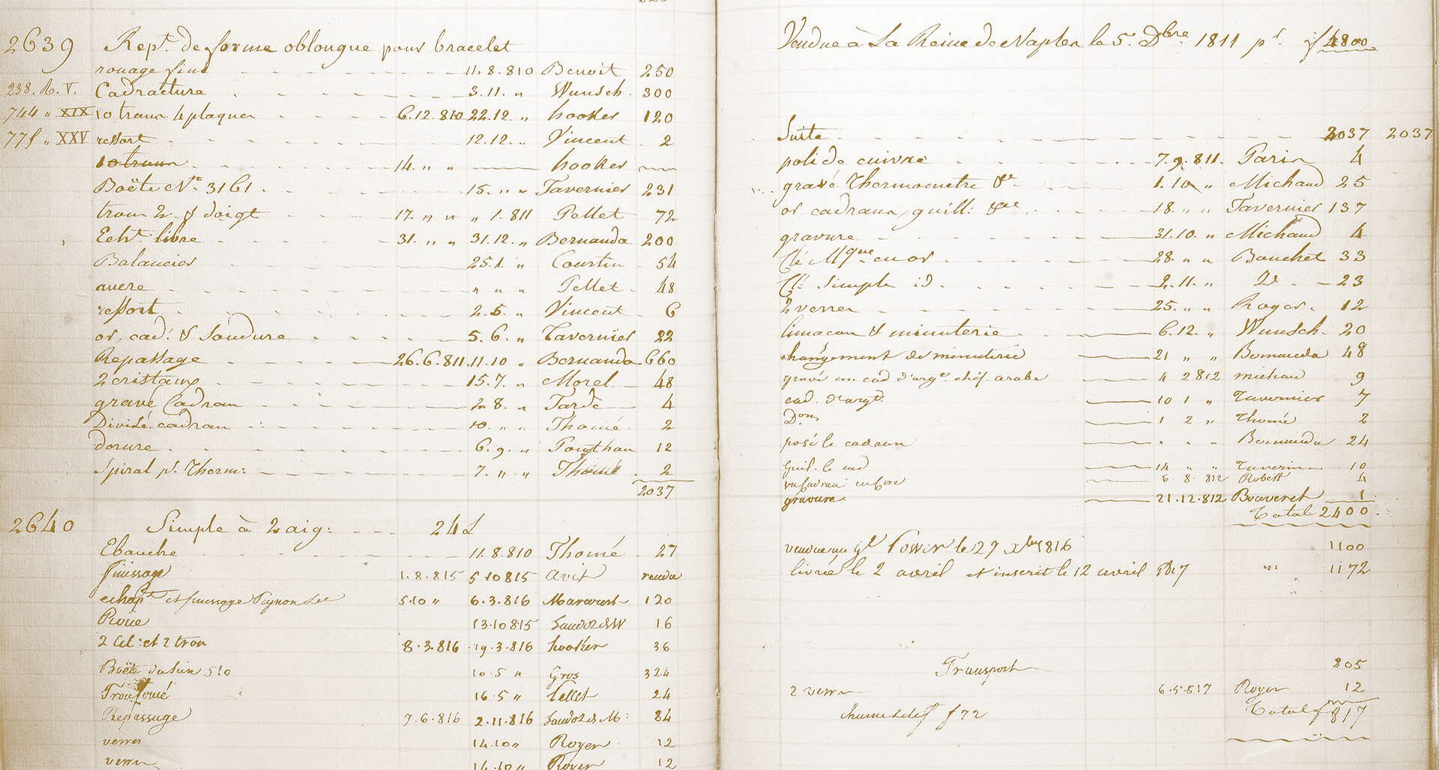 2639 Rep.t de forme oblongue pour bracelet
rouage fini 11.8.810 Benoit 250
238. b. V. Cadracture 3.11. " Wunsch 300
744 " XIX 10 trous 4 plaques 6.12.810 22.12. " hooker 120
775 " XXV ressort 12.12. " Vincent 2
10 trous 14. " " hooker
Boëte No. 3161. 15. " " Tavernier 231
trous 2 f doigt 17. " " " 1.811 Pellet 72
Echt. livre 31. " " 31.12. " Bernauda 200
Balancier 25.1. " Courtin 54
" " " Pellet 48
ressort 2.5. " Vincent 6
or, cad: & Soudure 5.6. " Tavernier 22
Repassage 26.6.811 11.10 " Bernauda 660
2 cristaux 15.7. " Morel 48
gravé Cadran 2.8. " Tardé 4
Divisé cadran 10. " " Thomé 2
dorure 6.9. " Ponthan 12
Spiral pr. Therm: 7. " " Thomé 2
2037
2640 Simple à 2 aig: 24 L
Ebauche 11.8.810 Thomé 27
finissage 1.8.815 5 10 815 Avit rendu
echapt et finissage 5.10 " 6.3.816 120
Roue 13.10 815 16
2 Cil: et 2 trou 8.3.816 19.3.816 hooker 36
Boëte 510 10.5 " Gros 324
16.5 " Pellet 24
Repassage 7.6.816 2.11.816 84
verres 14.10 " Royer 12
verres 14.10 " Royer 12
Vendue à La Reine de Naples le 5. Dbre 1811 pr. f 4800
Suite 2037 2037
poli de cuivre 7.9.811. Paris 4
gravé Thermometre &a 1.10 " Michaud 25
or, cadrans, guill: &ca 18. " " Tavernier 137
gravure 31.10. " Michaud 4
Clé Mque en or 28. " " Bouchet 33
Clé Simple id. 2.11. " Do 23
2 verres 25. " " Roger 12
limaçon & minuterie 6.12. " Wunsch 20
changement de minuterie 21 " " Bernauda 48
gravé un cad d'argt. chif. arabe 4 2 812 michau 9
cad. d'argt 10 1 " Tavernier 7
Don 1 2 " Thomé 2
posé le cadran " " " Bernauda 24
Guil. le cad 14 " " Tavernier 10
6.8.812 Robert 4
gravure 21.12.812 Bouveret 1
Total 2400.
vendue au Gl Power le 27 xbre 1816 1100
livrée le 2 avril et inscrit le 12 avril 1817 " 1172
Transport 805
2 verres 6.5.817 Royer 12
f 72 Total f 817